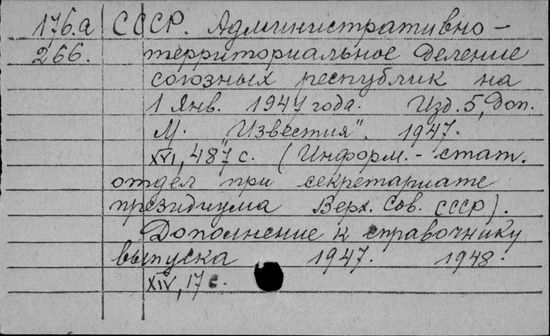 176.а СССР. Административно-
266. территориальное деление
союзных республик на
1 Янв. 1947 года. Изд. 5, доп.
М. „Известия". 1947.
XVI, 487 с. (Информ.-стат.
отдел при секретариате
президиума Верх. Сов. СССР).
Дополнение к справочнику
выпуска 1947. 1948.
XIV, 17 с.